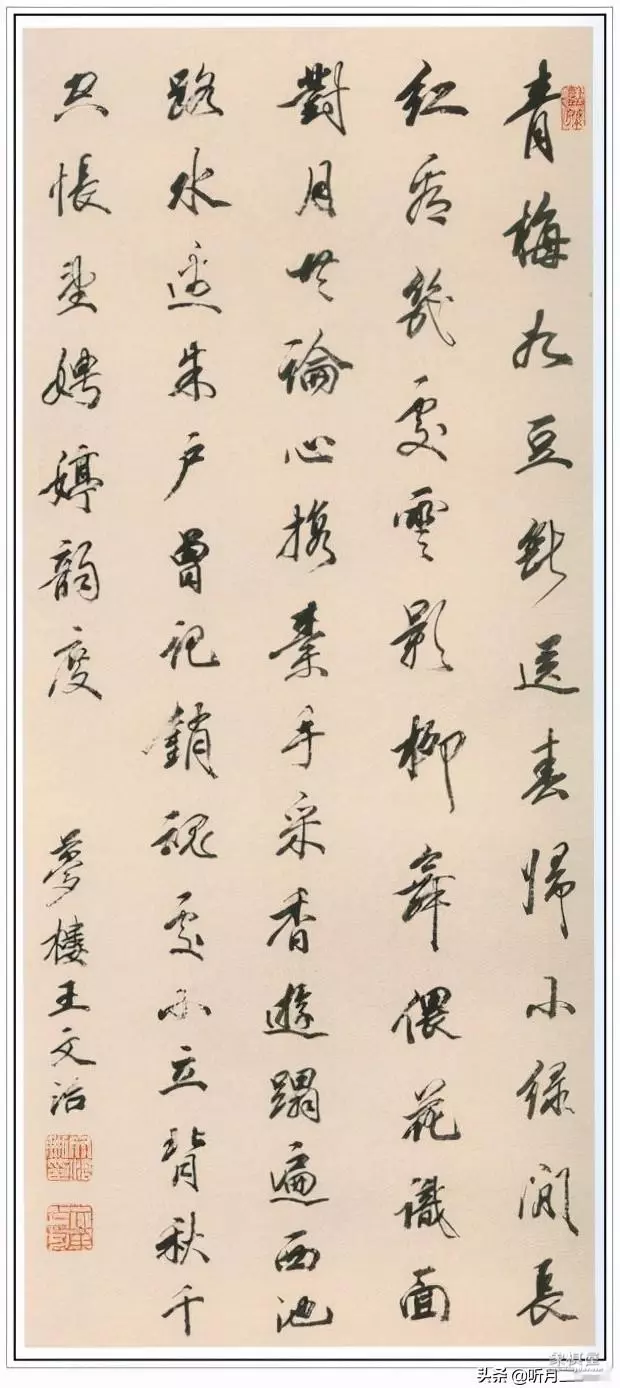 青梅如豆斷送春歸小綠間長
紅看幾處雲影柳舞偎花識面
對月共論心攜素手采香遊蹋遍西池
路水邊朱戶曾記銷魂處小立背秋千
空悵望娉婷韻度
夢樓王文治
头条 @听月二